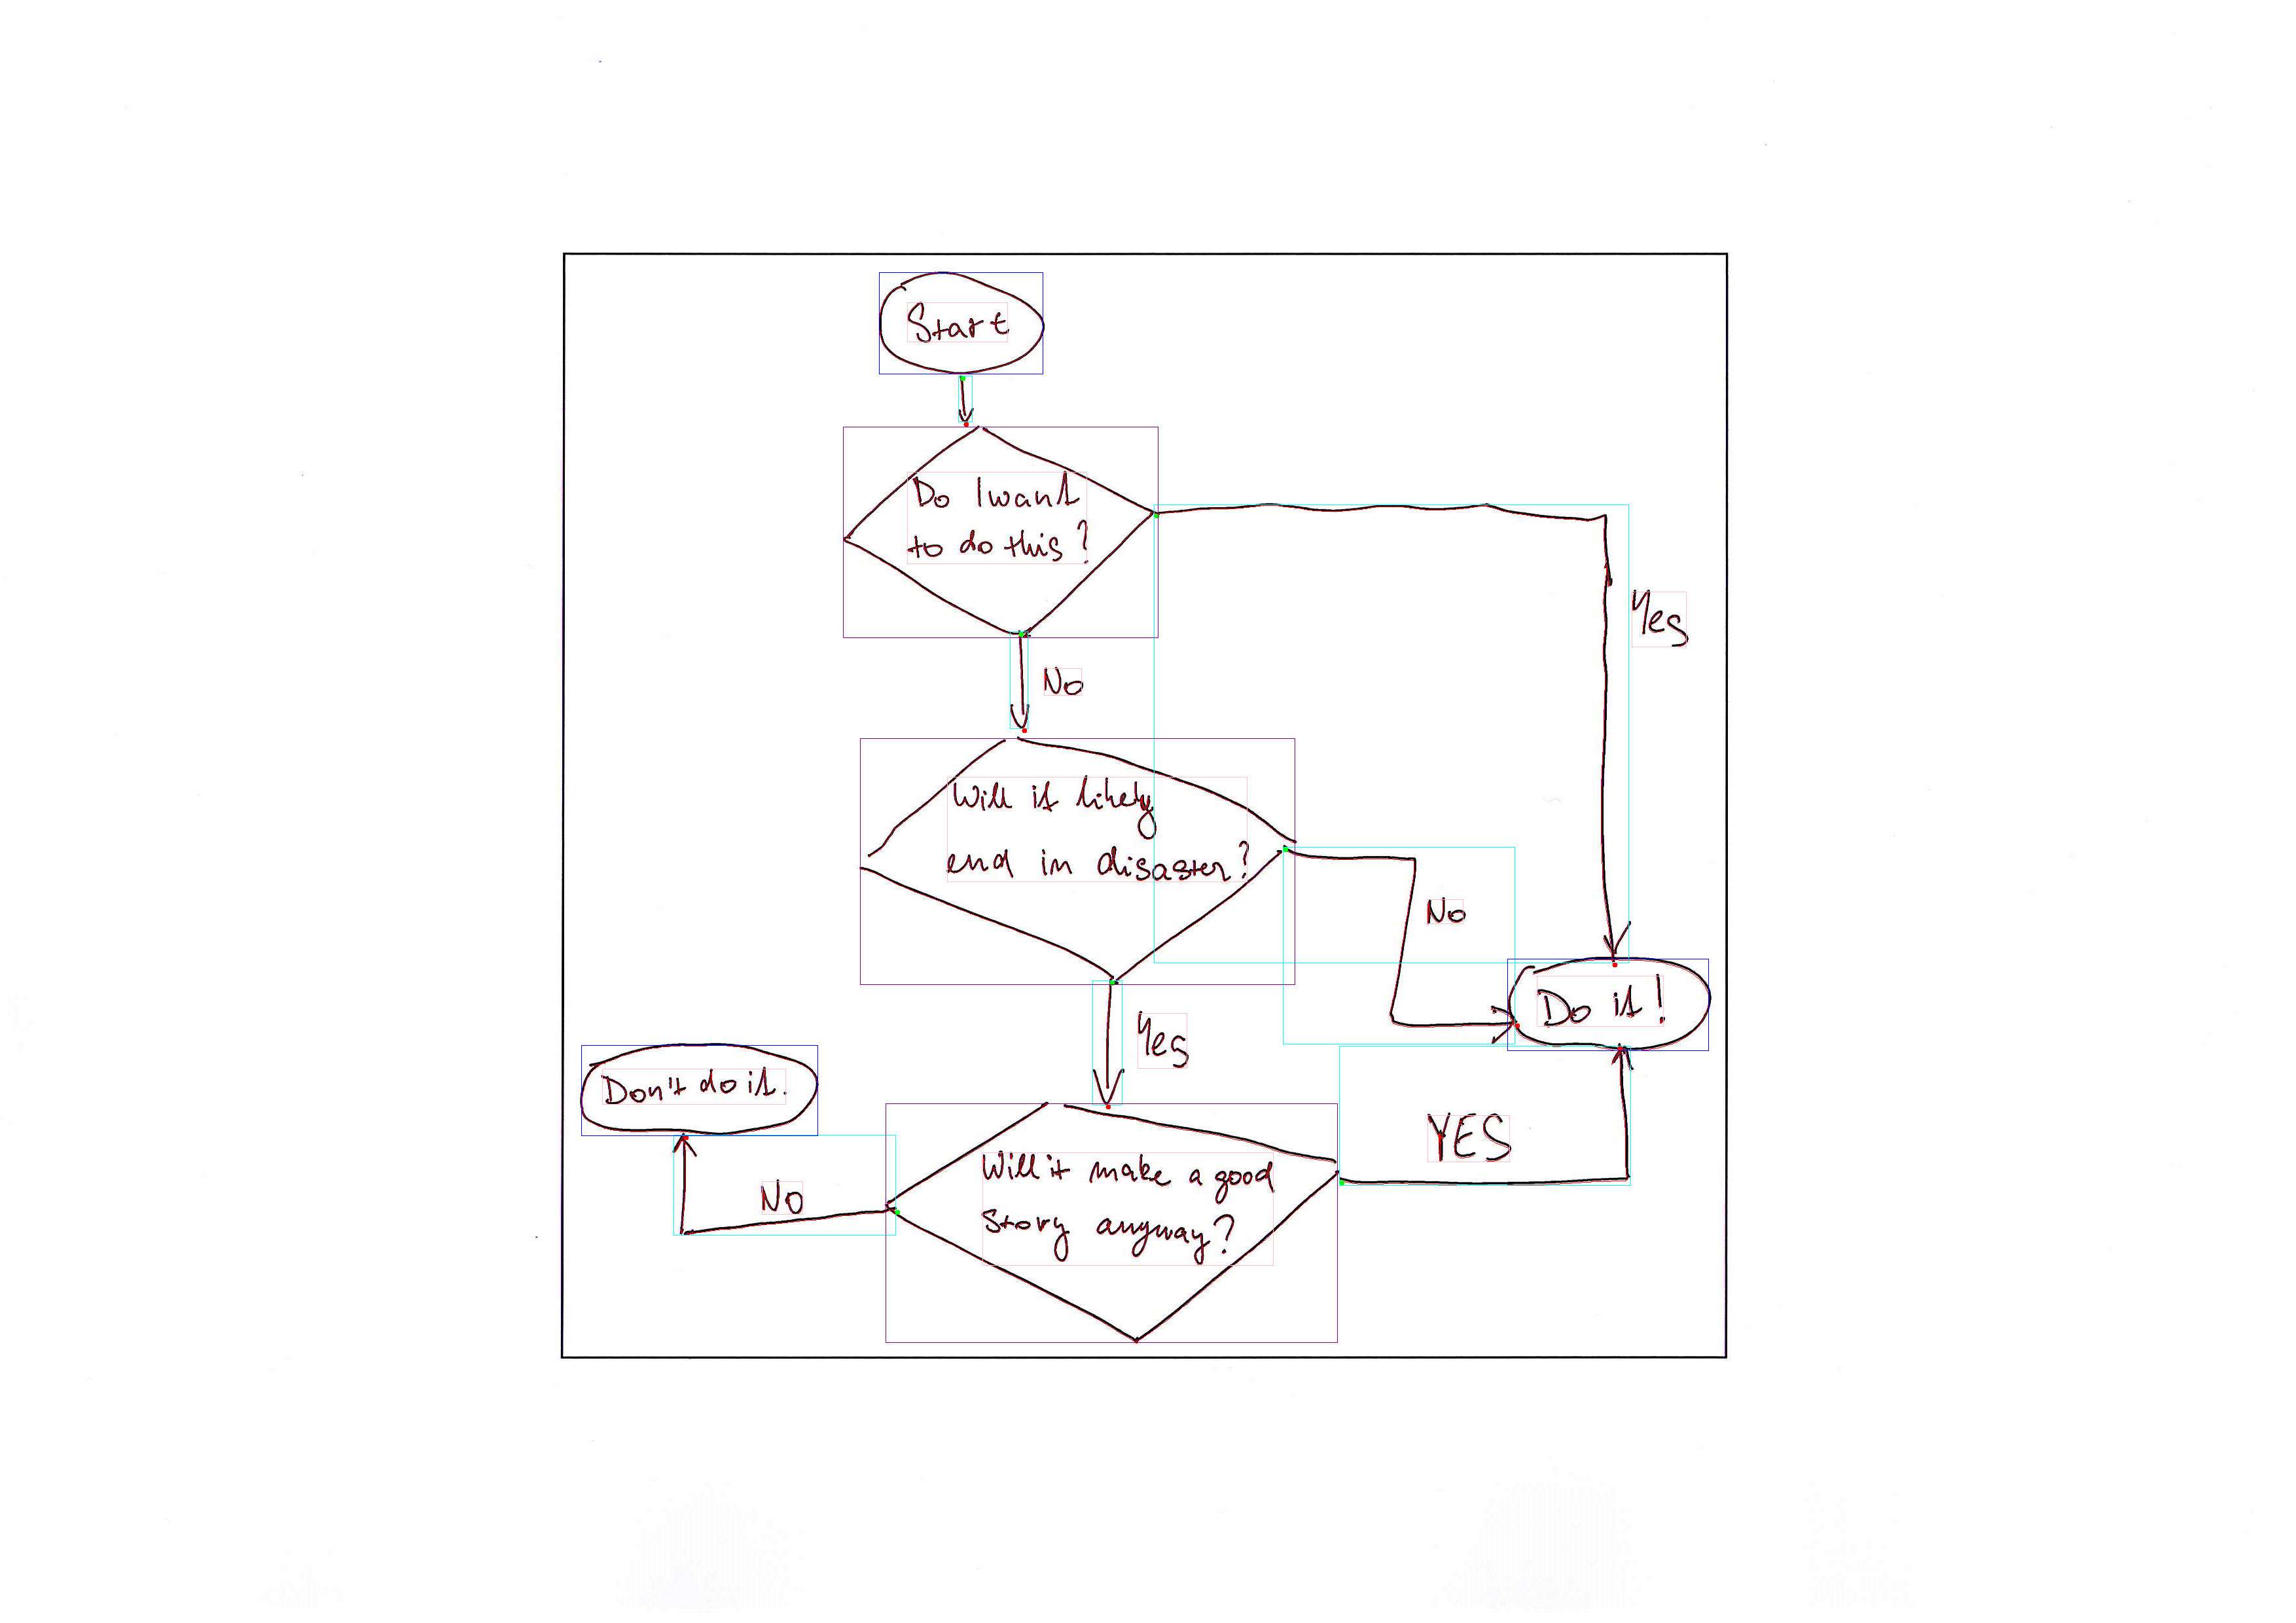 Start
Do I want
to do this?
Yes
No
Will it likely
end in disaster?
No
Do it!
Yes
Don't do it.
YES
Will it make a good
story anyway?
No